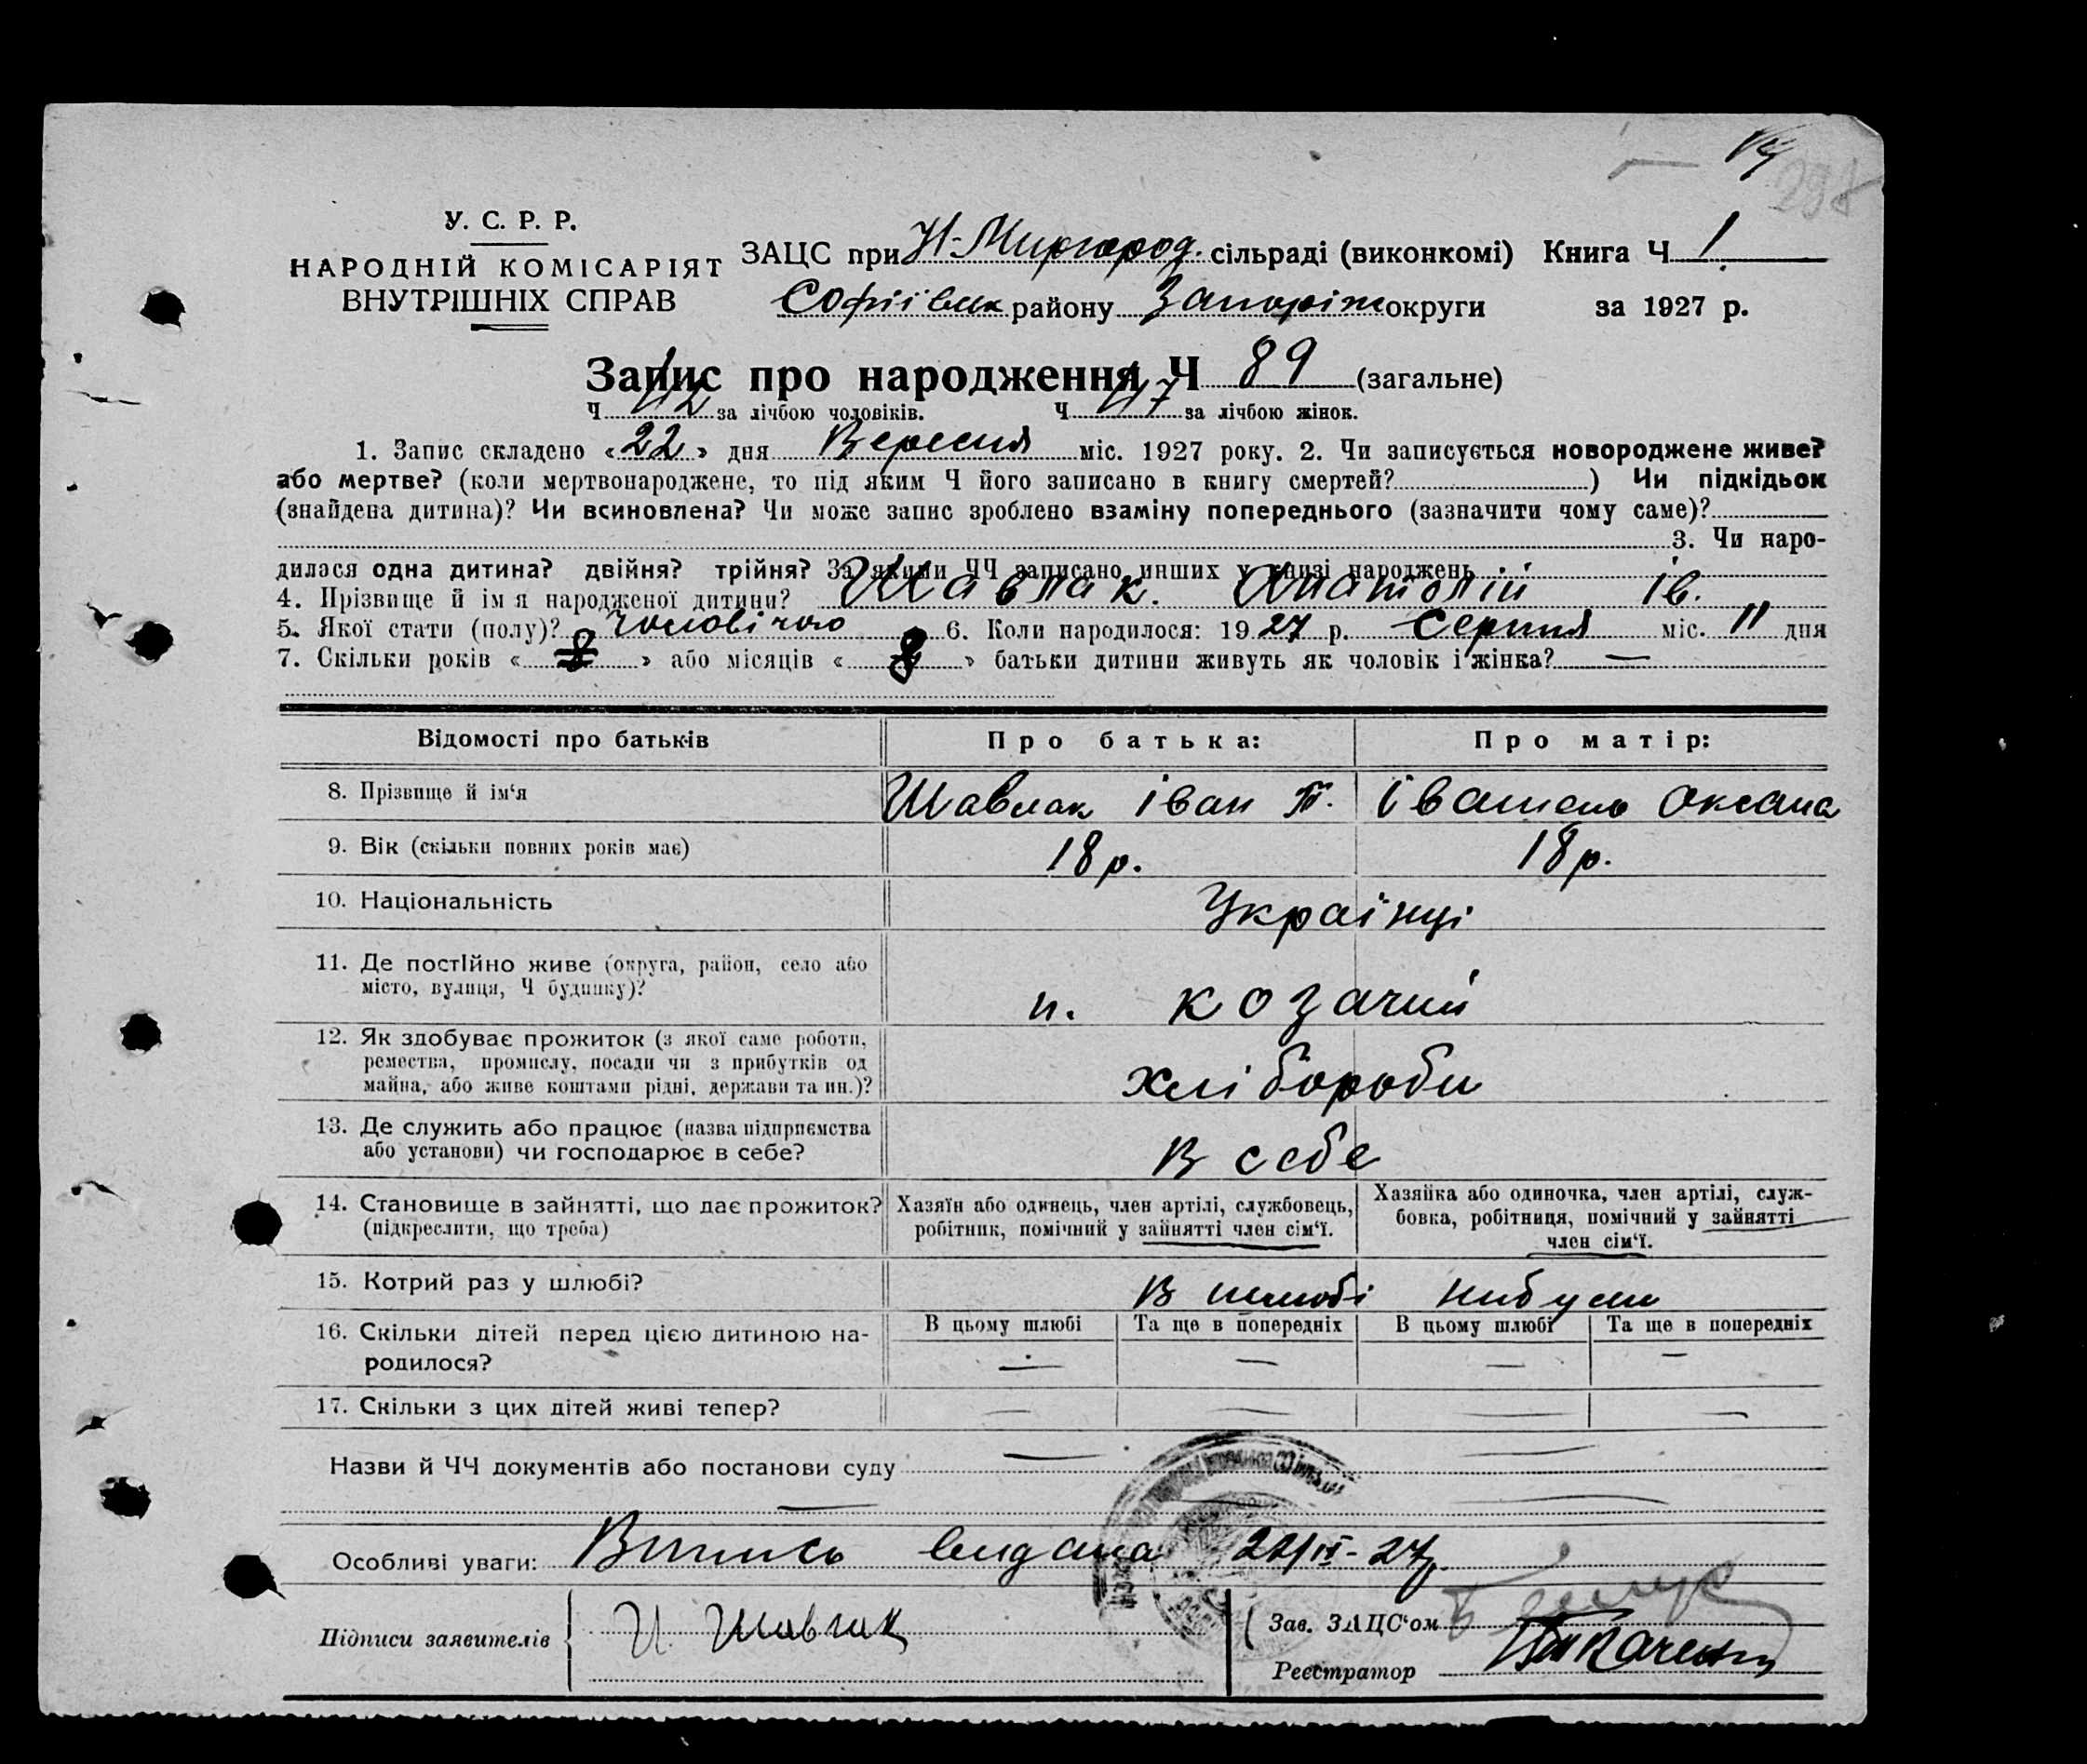 У. С. Р. Р.
НАРОДНІЙ КОМІСАРІЯТ
ВНУТРІШНІХ СПРАВ
ЗАЦС при Н-Миргород. сільраді (виконкомі) Книга Ч 1
Софіївськ району Запоріж округи за 1927 р.
Запис про народження Ч 89 (загальне)
Ч 42 за лічбою чоловіків. Ч 47 за лічбою жінок.
1. Запис складено «22» дня Вересня міс. 1927 року. 2. Чи записується новороджене живе?
або мертве? (коли мертвонароджене, то під яким Ч його записано в книгу смертей? ) Чи підкідьок
(знайдена дитина)? Чи всиновлена? Чи може запис зроблено взаміну попереднього (зазначити чому саме)?
3. Чи наро-
дилася одна дитина? двійня? трійня? За якими ЧЧ записано инших у книзі народжень
4. Прізвище й ім я народженої дитини? Шавлак. Анатолій Ів.
5. Якої стати (полу)? Чоловічою 6. Коли народилося: 1927 р. Серпня міс. 11 дня
7. Скільки років « » або місяців «8» батьки дитини живуть як чоловік і жінка? —
Відомості про батьків Про батька: Про матір:
8. Прізвище й ім'я Шавлак Іван Т. Івашень Оксана
9. Вік (скільки повних років має) 18 р. 18 р.
10. Національність Українці
11. Де постійно живе (округа, район, село або
місто, вулиця, Ч будинку)? п. Козачий
12. Як здобуває прожиток (з якої саме роботи,
ремества, промислу, посади чи з прибутків од
майна, або живе коштами рідні, держави та ин.)? хлібороби
13. Де служить або працює (назва підприємства
або установи) чи господарює в себе? В себе
14. Становище в зайнятті, що дає прожиток? (підкреслити, що треба)
Хазяїн або одинець, член артілі, службовець,
робітник, помічний у зайнятті член сім'ї.
Хазяйка або одиночка, член артілі, служ-
бовка, робітниця, помічний у зайнятті
член сім'ї.
15. Котрий раз у шлюбі? В шлюбі нибули
16. Скільки дітей перед цією дитиною на-
родилося?
В цьому шлюбі Та ще в попередніх В цьому шлюбі Та ще в попередніх
— — — —
17. Скільки з цих дітей живі тепер? — — — —
Назви й ЧЧ документів або постанови суду —
Особливі уваги: Випись видана 22/ІХ-27р.
Підписи заявителів И Шавлак
Зав. ЗАЦС'ом
Реєстратор